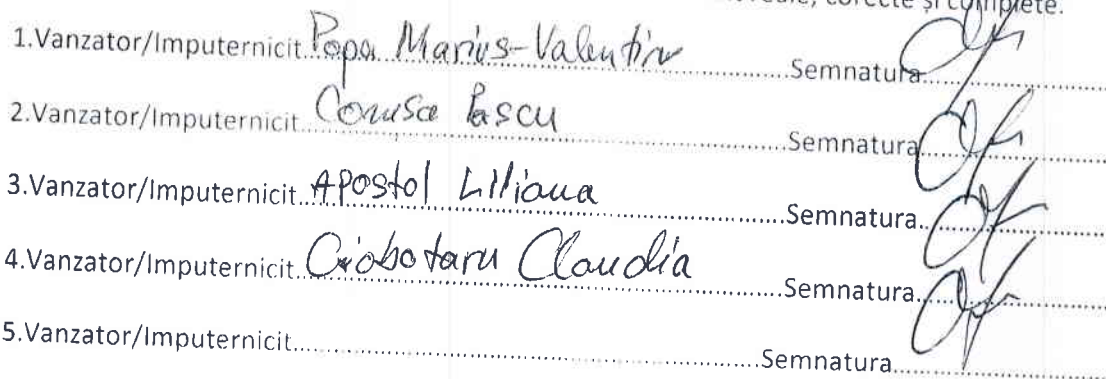 corecte și complete.
1.Vanzator/Imputernicit Popa Marius-Valentin Semnatura
2.Vanzator/Imputernicit Coruse Pascu Semnatura
3.Vanzator/Imputernicit Apostol Liliana Semnatura
4.Vanzator/Imputernicit Ciobotaru Claudia Semnatura
5.Vanzator/Imputernicit Semnatura